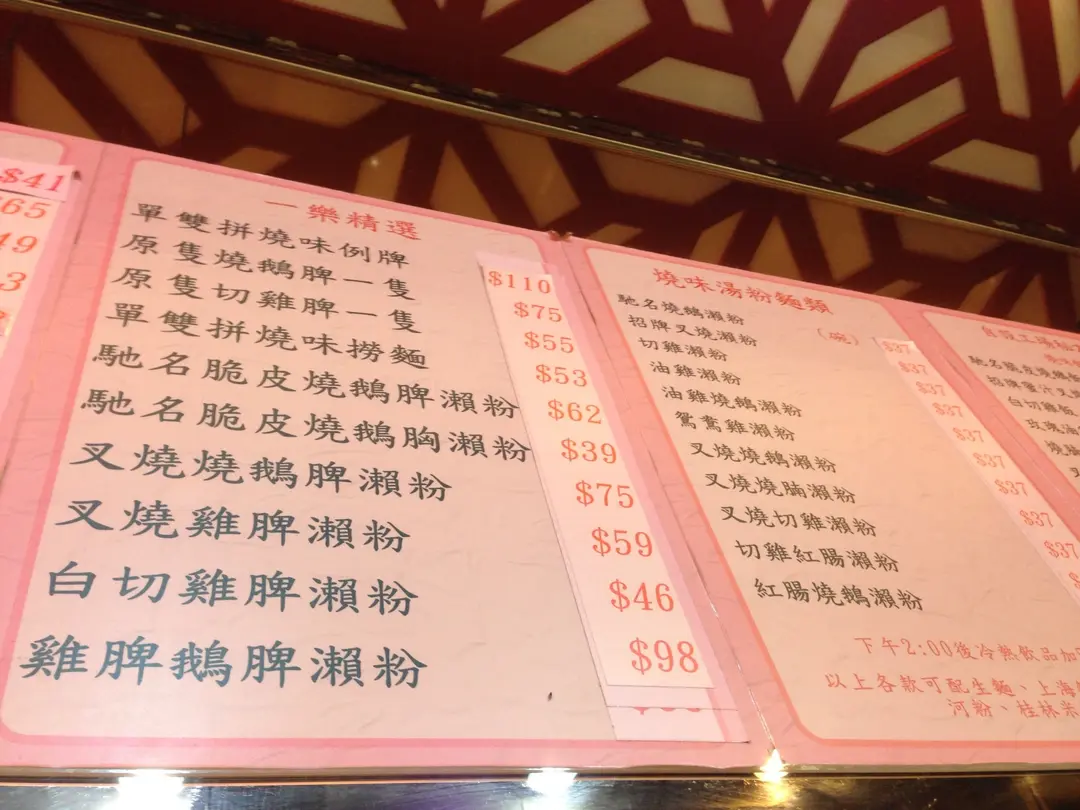 $41
65
49
3
一樂精選
單雙拼燒味例牌 $110
原隻燒鵝脾一隻 $75
原隻切雞脾一隻 $55
單雙拼燒味撈麵 $53
馳名脆皮燒鵝脾瀨粉 $62
馳名脆皮燒鵝胸瀨粉 $39
叉燒燒鵝脾瀨粉 $75
叉燒雞脾瀨粉 $59
白切雞脾瀨粉 $46
雞脾鵝脾瀨粉 $98
燒味湯粉麵類
(碗)
馳名燒鵝瀨粉 $37
招牌叉燒瀨粉 $37
切雞瀨粉 $37
油雞瀨粉 $37
油雞燒鵝瀨粉 $37
鴛鴦雞瀨粉 $37
叉燒燒鵝瀨粉 $37
叉燒燒腩瀨粉 $37
叉燒切雞瀨粉 $37
切雞紅腸瀨粉
紅腸燒鵝瀨粉
下午2:00後冷熱飲品加
以上各款可配生麵、上海
河粉、桂林米
馳名脆皮燒鵝飯
招牌蜜汁叉
白切雞飯
玫瑰油
燒